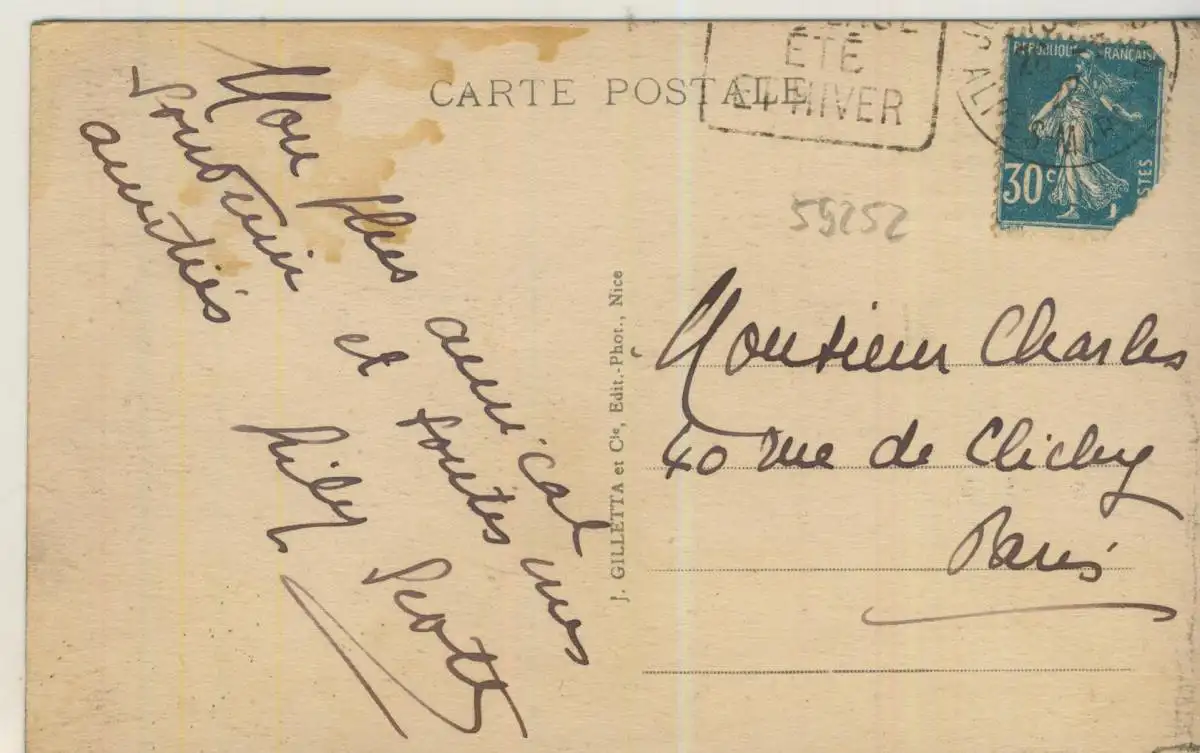 CARTE POSTALE
ÉTÉ
ET HIVER
RÉPUBLIQUE FRANÇAISE
30c
POSTES
59252
Mon plus amical
souvenir et toutes mes
amitiés
Lily Scott
J. GILLETTA et Cie, Edit.-Phot., Nice
Monsieur Charles
40 rue de Clichy
Paris